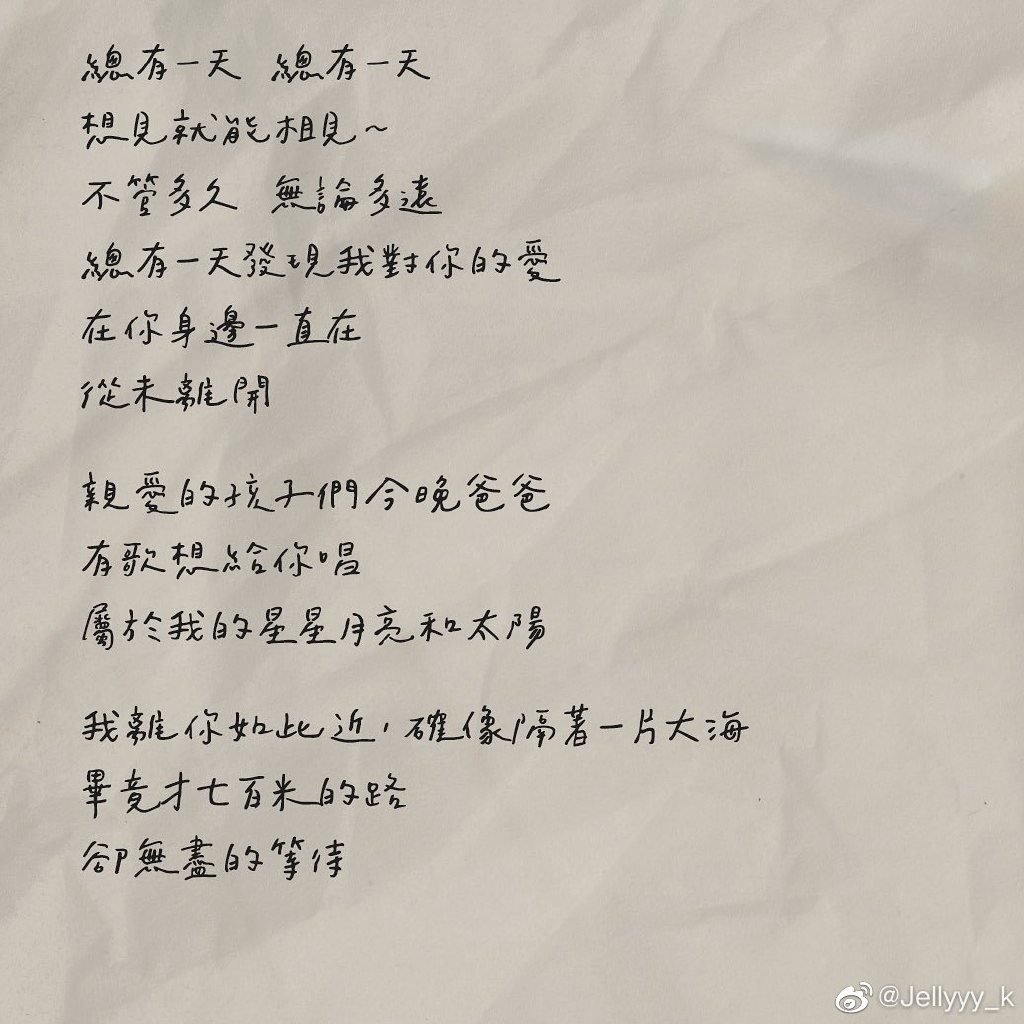 總有一天 總有一天
想見就能相見~
不管多久 無論多遠
總有一天發現我對你的愛
在你身邊一直在
從未離開
親愛的孩子們今晚爸爸
有歌想給你唱
屬於我的星星月亮和太陽
我離你如此近，確像隔著一片大海
畢竟才七百米的路
卻無盡的等待
@Jellyyy_k